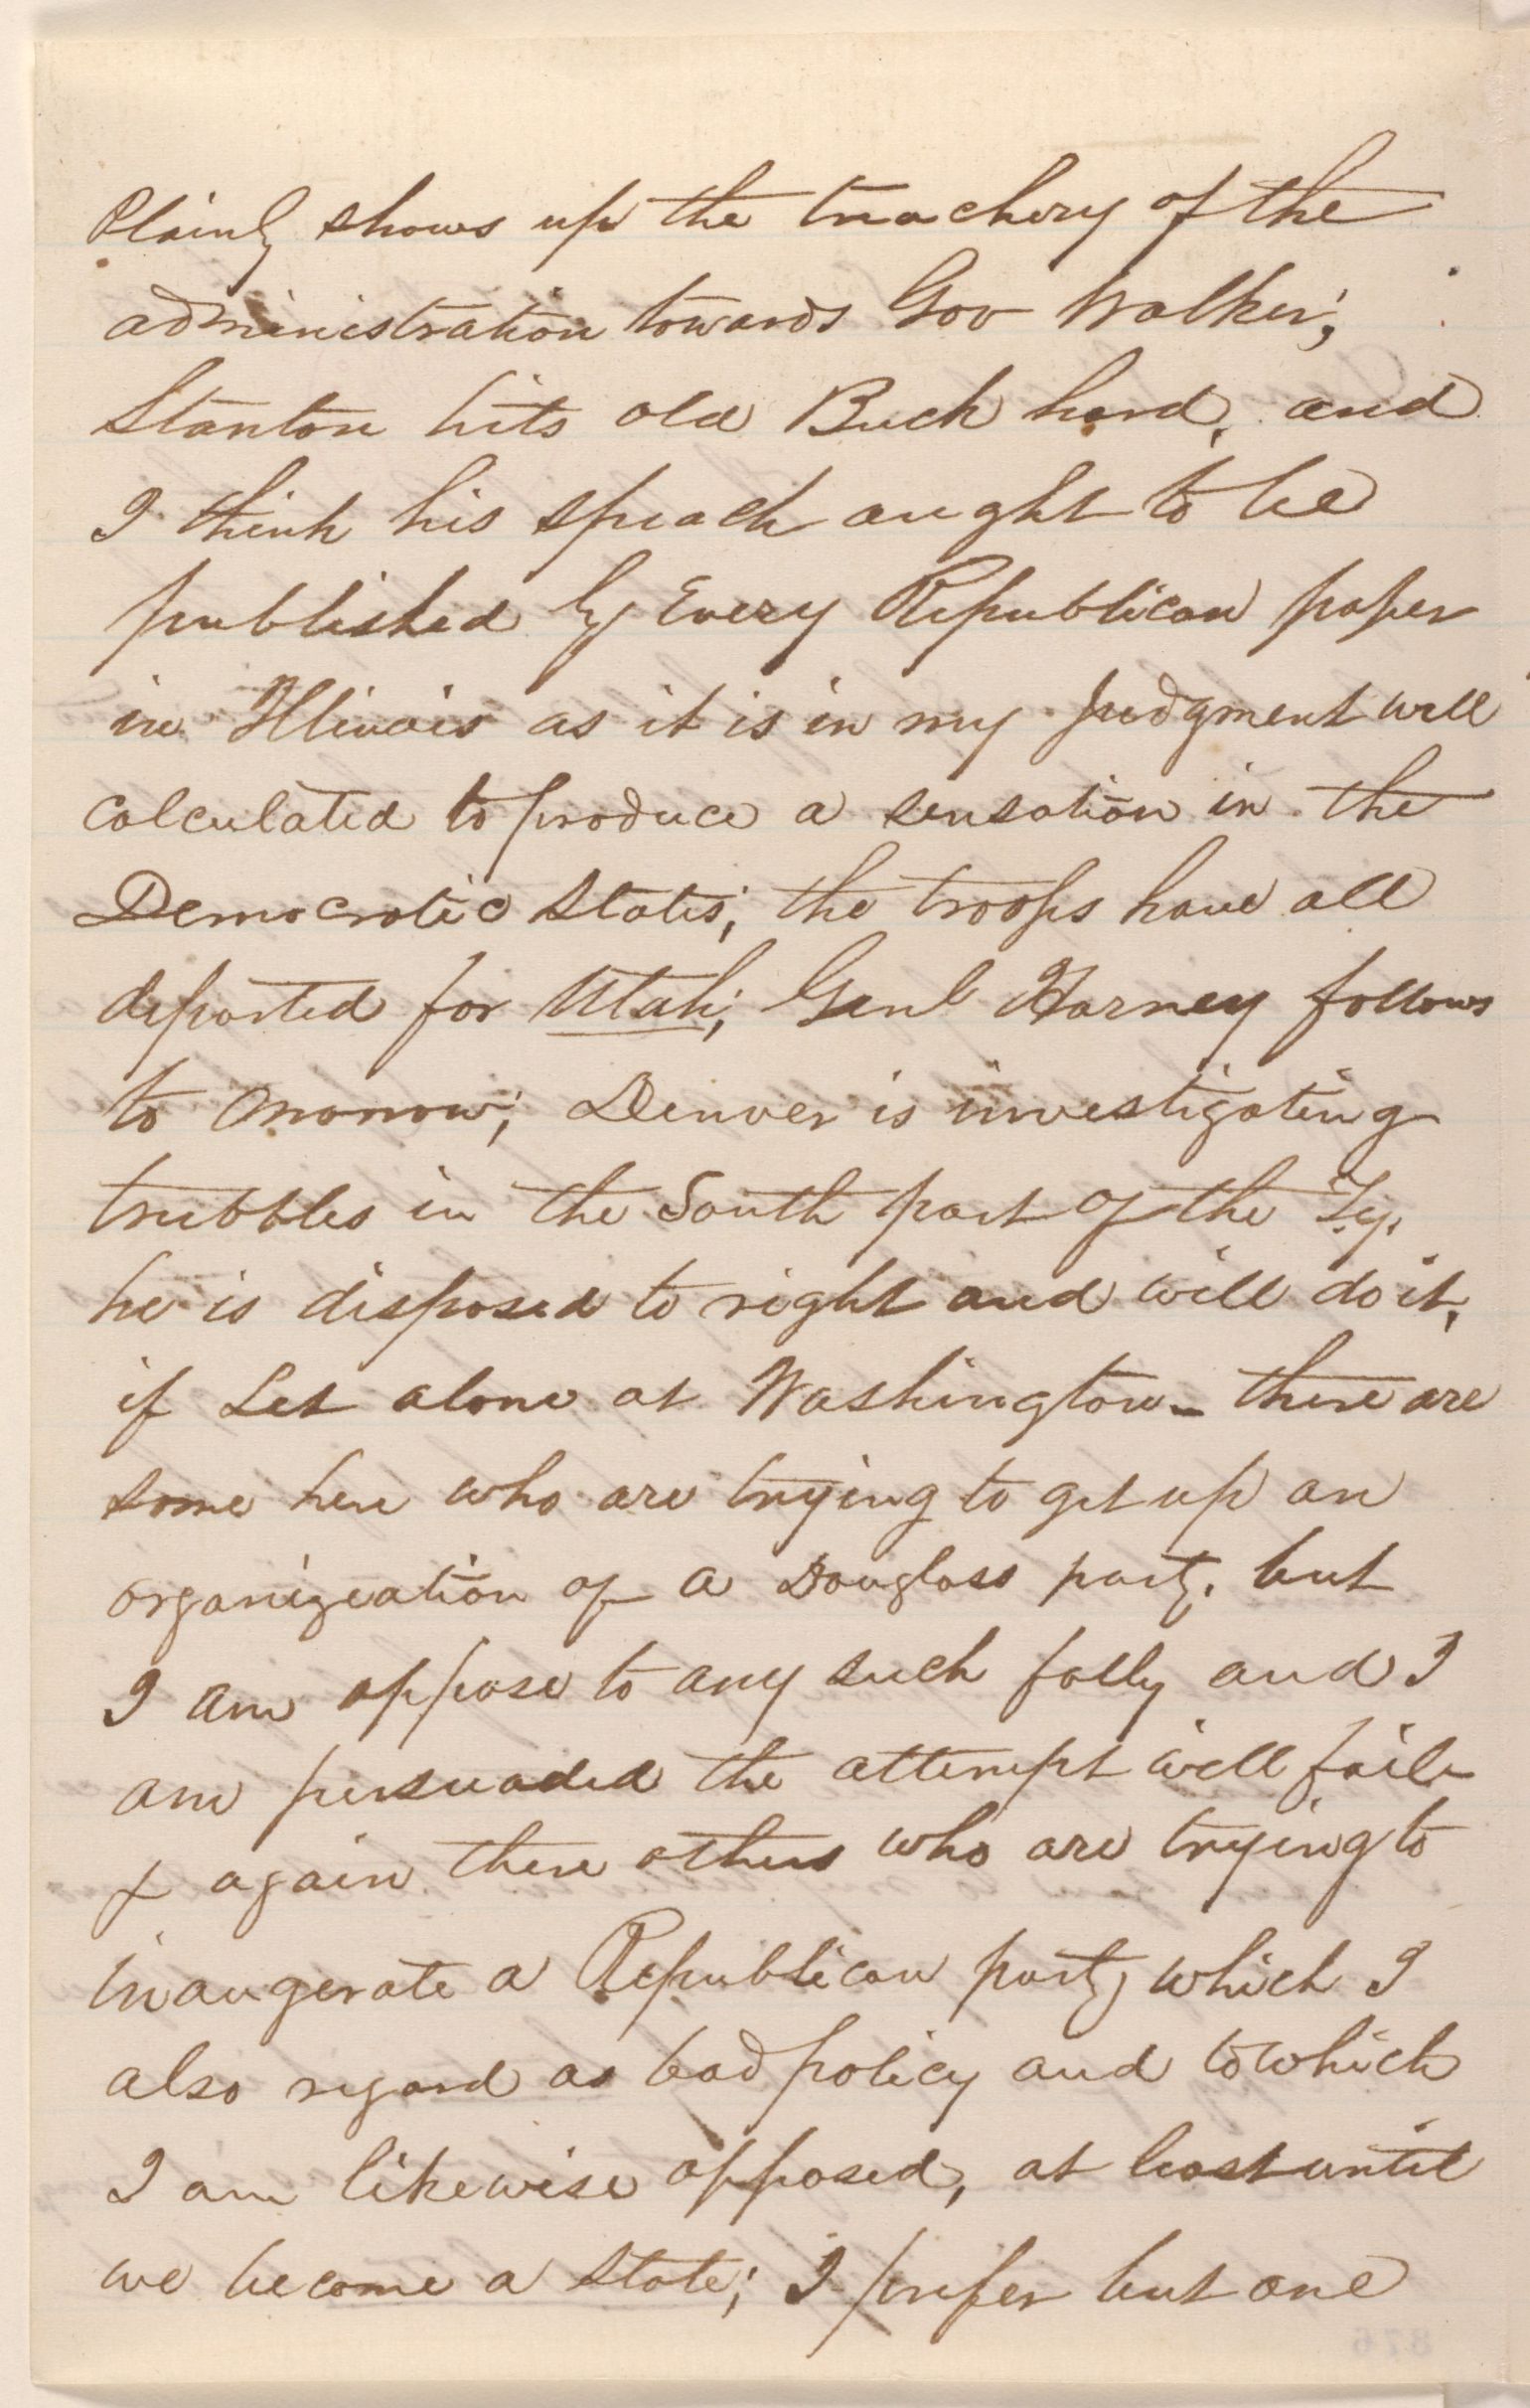 Plainly shows up the trachery of the
administration towards Gov Walker;
Stanton hits old Buck hard, and
I think his speach aught to be
published by Every Republican paper
in Illinois as it is in my judgment well
calculated to produce a sensation in the
Democratic States; the troops have all
departed for Utah; Genl Harney follows
to morrow; Denver is investigating
trubbles in the South part of the Ty.
he is disposed to right and will do it,
if Let alone at Washington - there are
some here who are trying to get up an
organization of a Douglass party. but
I am oppose to any such folly and I
am persuaded the attempt will faile
& again there others who are trying to
inaugerate a Republican party which I
also regard as bad policy and to which
I am likewise opposed, at least until
we become a State; I prefer but one